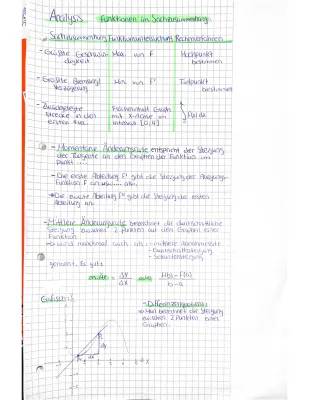 Analysis Funktionen im Sachzusammenhang
Sachzusammenhang Funktionsuntersuchung Rechenverfahren
- Größte Geschwin- Max. von F Hochpunkt
digkeit bestimmen
- Größte Bremsung/ Min. von F' Tiefpunkt
Verzögerung bestimmen
- Zurückgelegte Flächeninhalt Graph
Strecke in den mit X-Achse im
ersten Intervall [0;4]
- Momentane Änderungsrate entspricht der Steigung
der Tangente an den Graphen der Funktion im
Punkt
- Die erste Ableitung F' gibt die Steigung der
Funktion F an
- Die zweite Ableitung F'' gibt die Steigung der ersten
Ableitung an.
- Mittlere Änderungsrate berechnet die durchschnittliche
Steigung zwischen 2 Punkten auf den Graphen einer
Funktion
wird manchmal auch als - mittlere Änderungsrate
- Durchschnittssteigung
- Sekantensteigung
genannt. Es gilt:
ΔY
ΔX
b-a
Grafisch:
- Differenzenquotient
Man berechnet die Steigung
zwischen 2 Punkten eines
Graphen